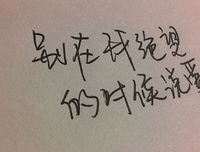 别在我绝望
的时候说爱